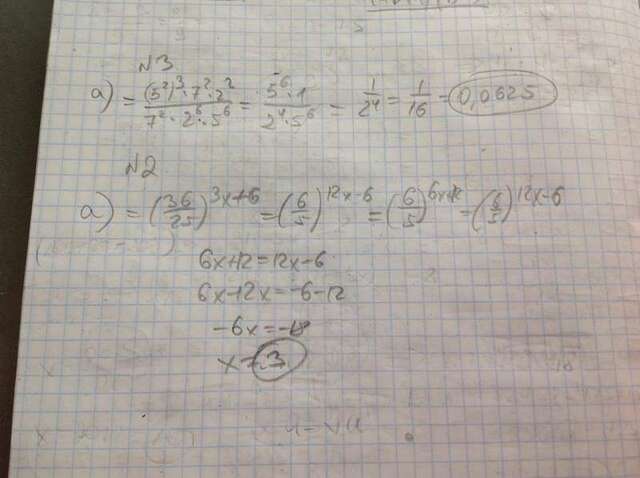 №3
а) = (5²)³·7²·2² / 7²·2⁶·5⁶ = 5⁶·1 / 2⁴·5⁶ = 1/2⁴ = 1/16 = 0,0625
№2
а) = (36/25)^3x+6 = (6/5)^12x-6 = (6/5)^6x+12 = (6/5)^12x-6
6x+12=12x-6
6x-12x=-6-12
-6x=-18
x=3